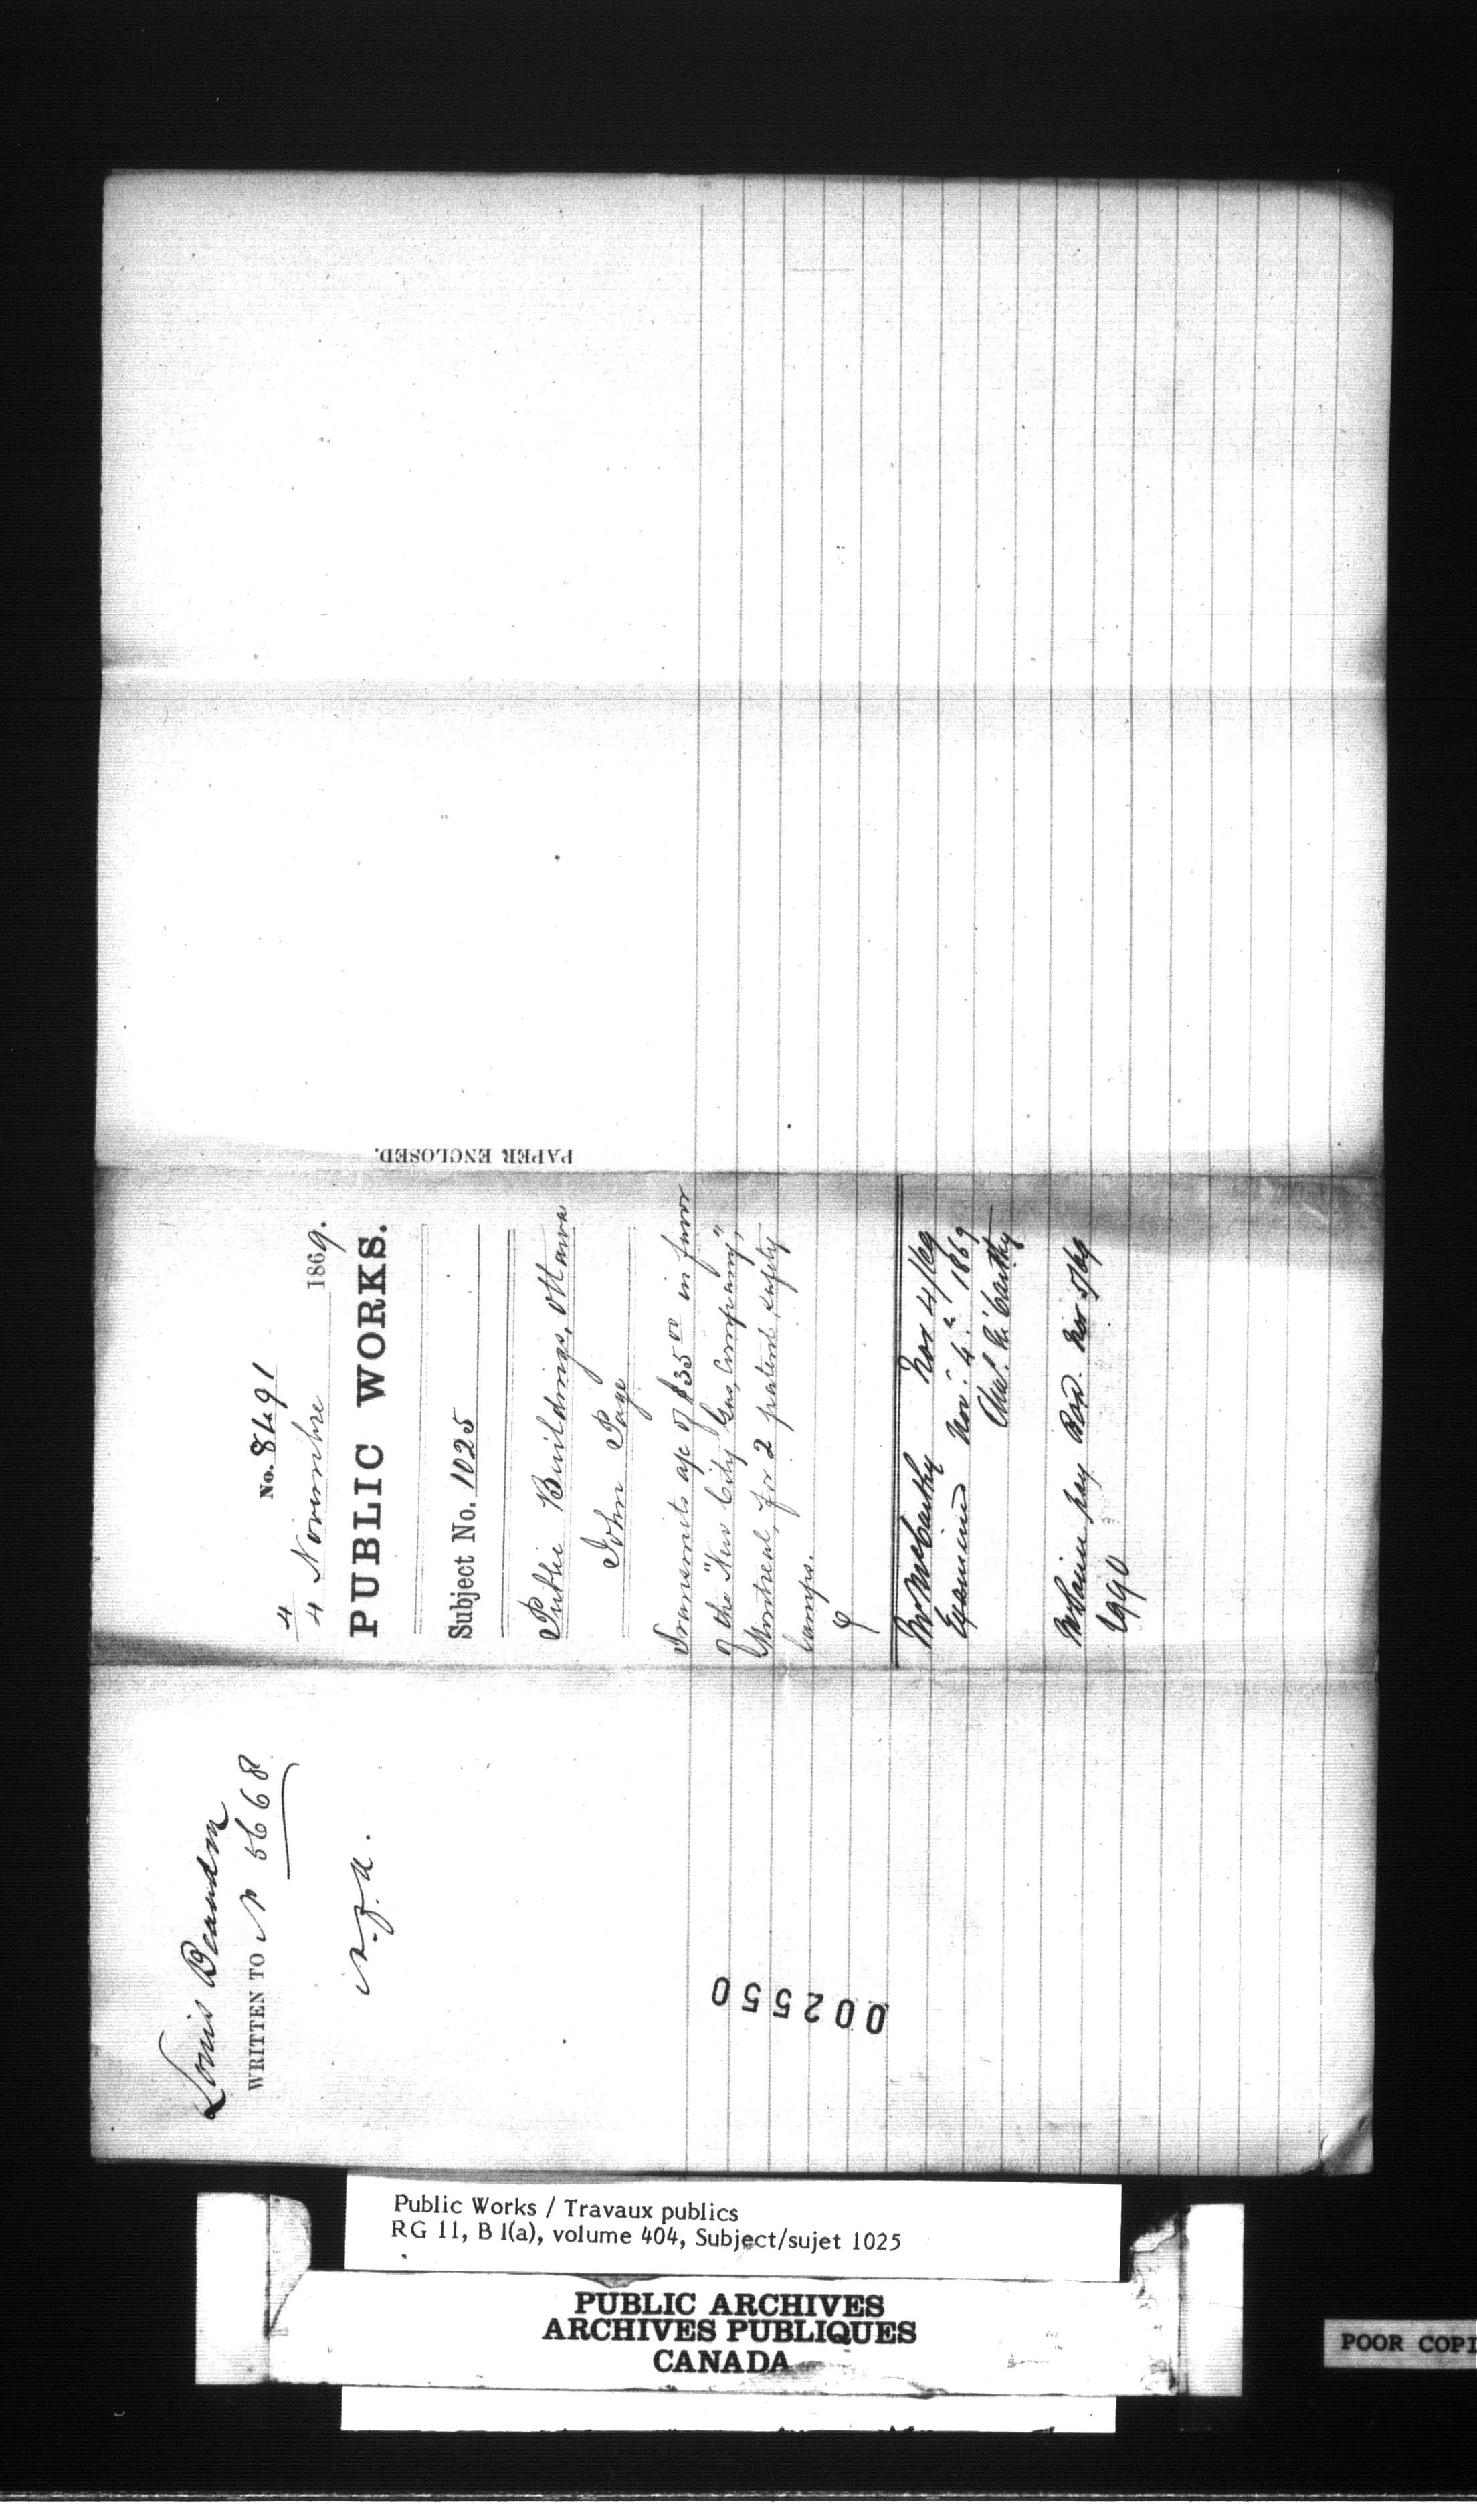 Louis Beaudon
WRITTEN TO N 5668
No. 8491
4
4 Novembre 1869.
PUBLIC WORKS.
Subject No. 1025
Public Buildings, Ottawa
John Page
Transmits a/c of $35.00 in favor
of the "New City Gas Company",
Montreal, for 2 patent safety
lamps.
Mr McCarthy Nov 4/69
Examined Nov. 4. 1869
Chal. McCarthy
pay Nov 5/69
PAPER ENCLOSED.
002550
Public Works / Travaux publics
RG 11, B 1(a), volume 404, Subject/sujet 1025
PUBLIC ARCHIVES
ARCHIVES PUBLIQUES
CANADA
POOR COPI